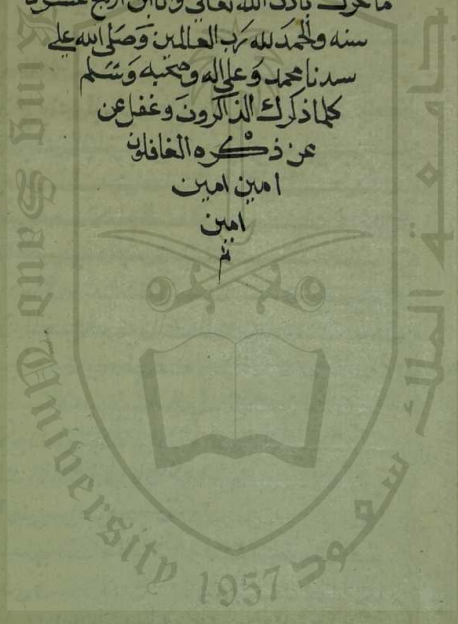 باذن الله تعالى
سنه والحمد لله رب العالمين وصلى الله على
سدنا محمد وعلى اله وصحبه وسلم
كلما ذكرك الذاكرون وغفل عن
عن ذكره الغافلون
امين امين
امين
تم
King Saud University
1957
جامعة الملك سعود